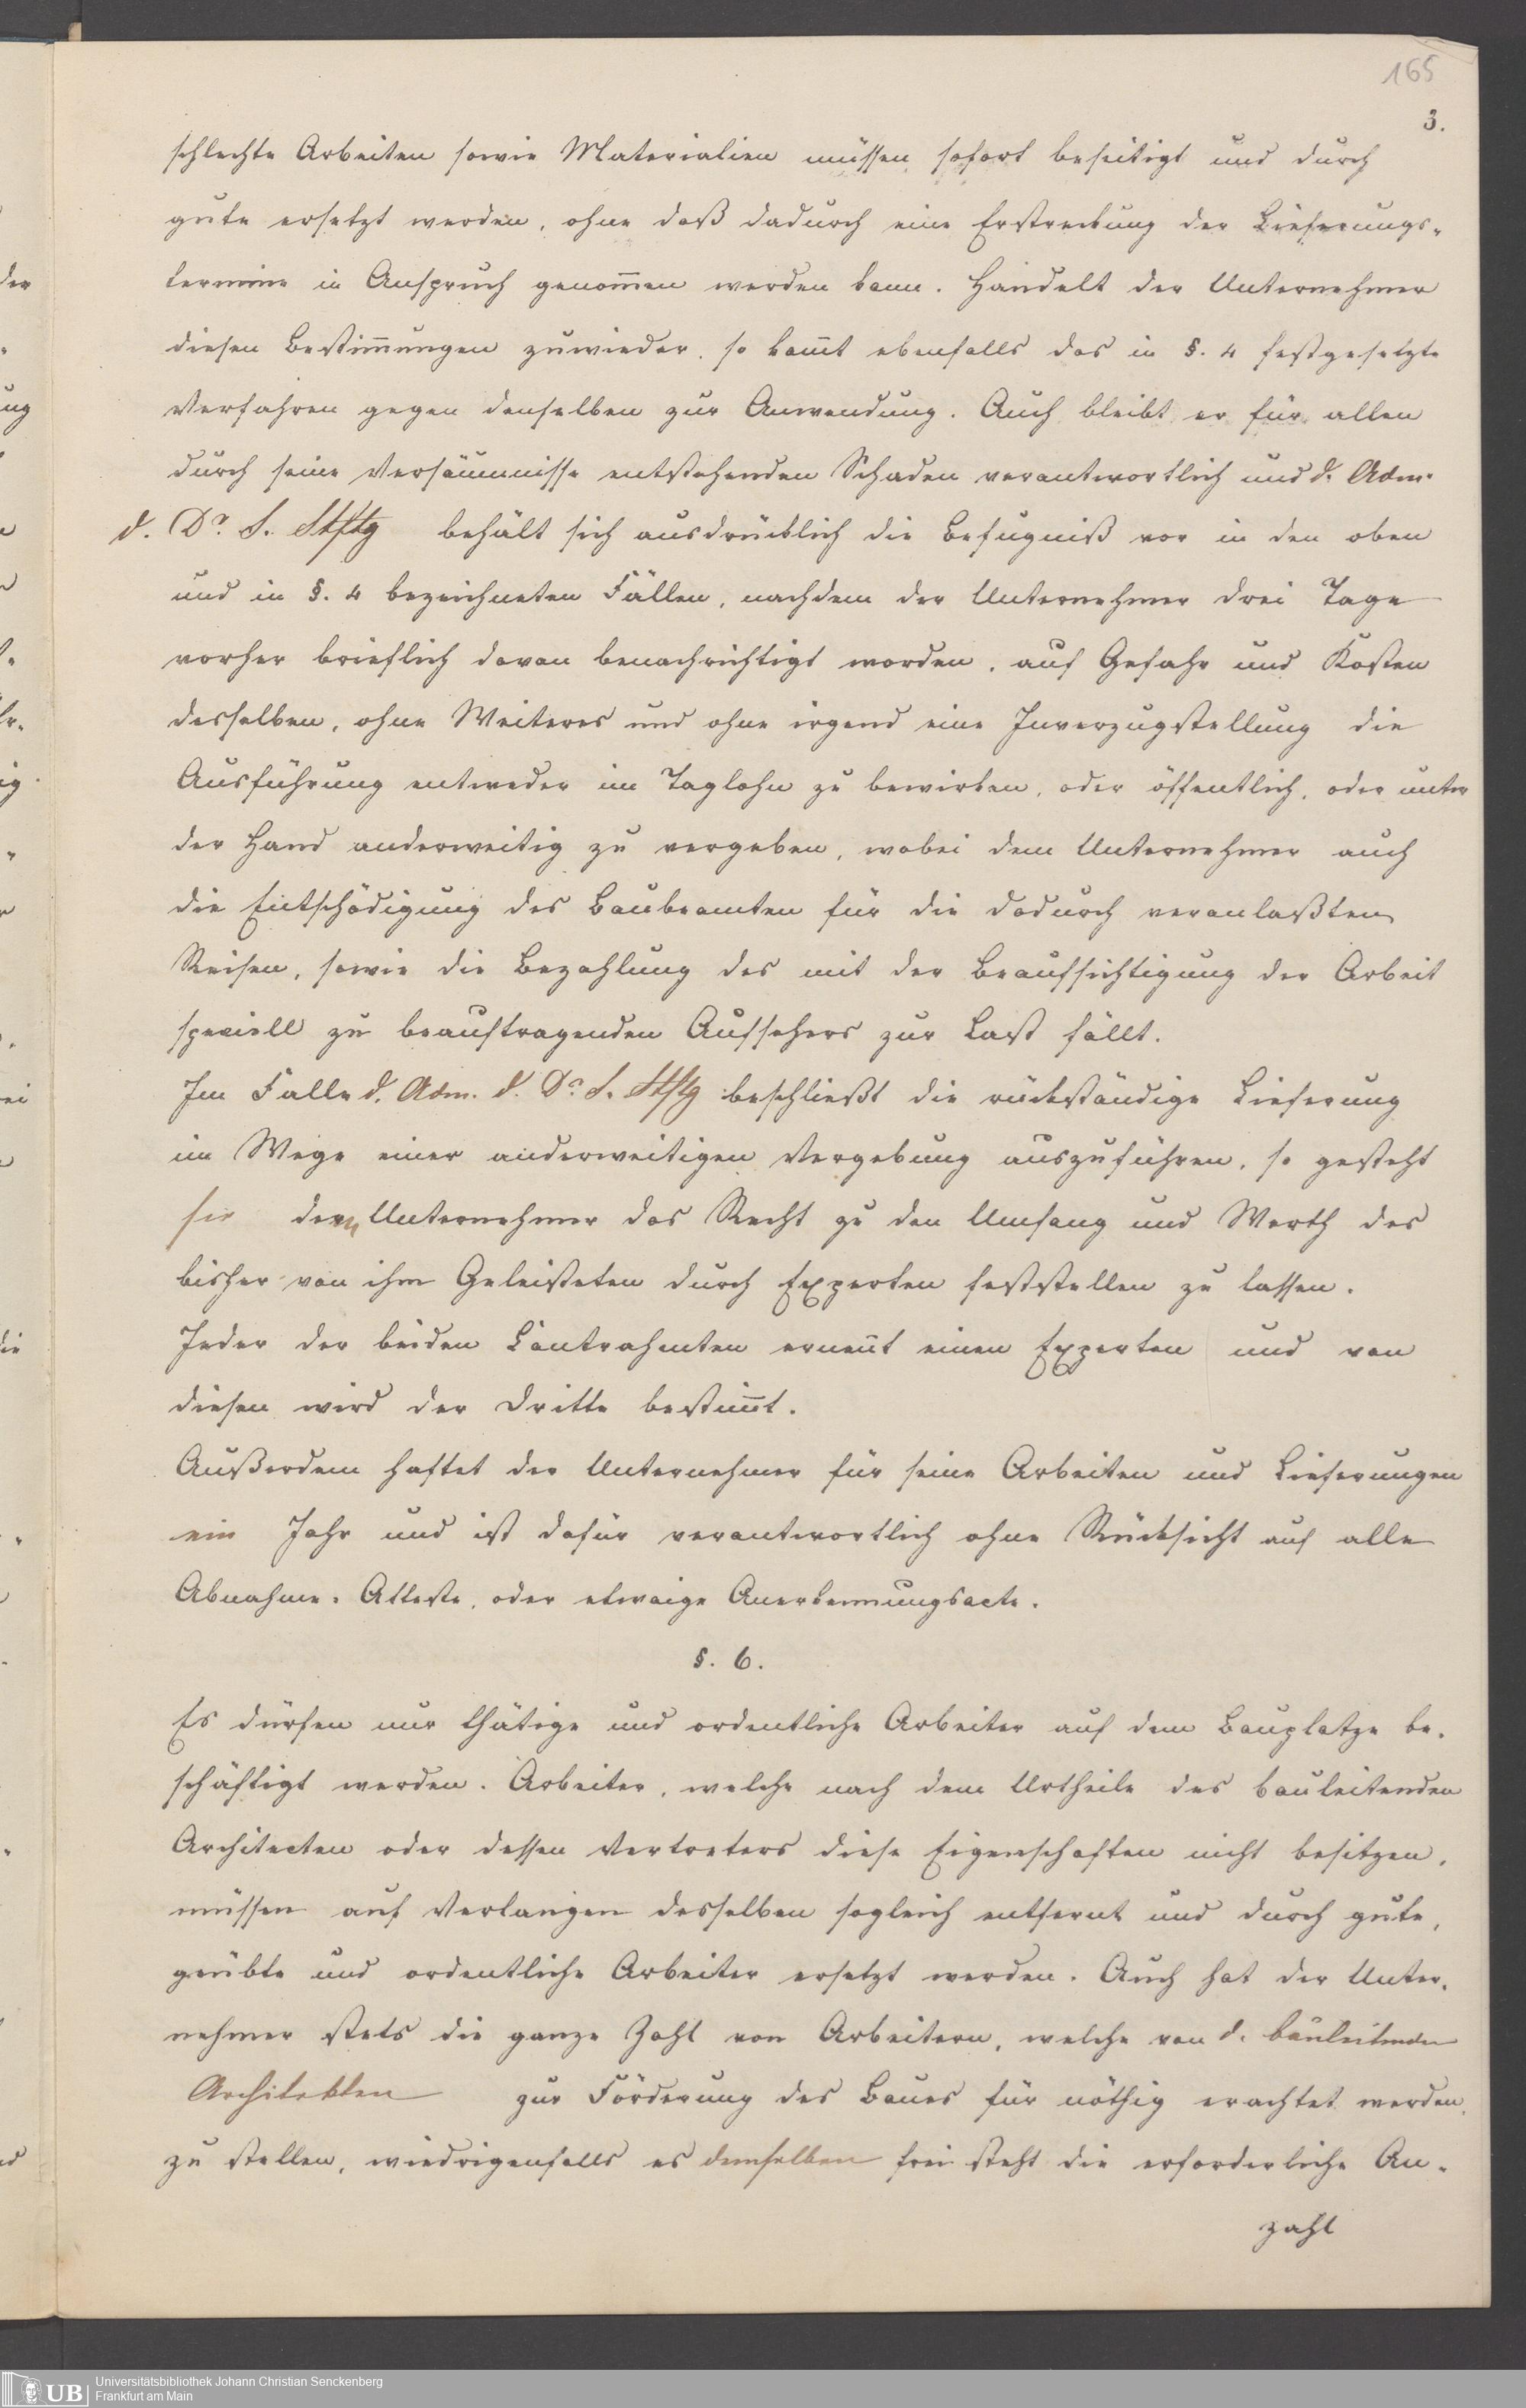 165
3.
schlechte Arbeiten sowie Materialien müssen sofort beseitigt und durch
gute ersetzt werden, ohne daß dadurch eine Erstreckung der Lieferungs-
termine in Anspruch genom̄en werden kann. Handelt der Unternehmer
diesen Bestim̄ungen zuwieder, so kom̄t ebenfalls das in §. 4 festgesetzte
Verfahren gegen denselben zur Anwendung. Auch bleibt er für allen
durch seine Versäumnisse entstehenden Schaden verantwortlich und d. Adm.
d. Dr. S. Stftg behält sich ausdrücklich die Befugniß vor in den oben
und in §. 4 bezeichneten Fällen, nachdem der Unternehmer drei Tage
vorher brieflich davon benachrichtigt worden, auf Gefahr und Kosten
desselben, ohne Weiteres und ohne irgend eine Inverzugstellung die
Ausführung entweder im Taglohn zu bewirken, oder öffentlich, oder unter
der Hand anderweitig zu vergeben, wobei dem Unternehmer auch
die Entschädigung des Baubeamten für die dadurch veranlaßten
Reisen, sowie die Bezahlung des mit der Beaufsichtigung der Arbeit
speciell zu beauftragenden Aufsehers zur Last fällt.
Im Falle d. Adm. d. Dr. S. Stftg beschließt die rückständige Lieferung
im Wege einer anderweitigen Vergebung auszuführen, so gesteht
sie dem Unternehmer das Recht zu den Umfang und Werth des
bisher von ihm Geleisteten durch Experten feststellen zu lassen.
Jeder der beiden Contrahenten ernen̄t einen Experten und von
diesen wird der Dritte bestim̄t.
Außerdem haftet der Unternehmer für seine Arbeiten und Lieferungen
ein Jahr und ist dafür verantwortlich ohne Rücksicht auf alle
Abnahme-Atteste, oder etwaige Anerkennungsacte.
§. 6.
Es dürfen nur thätige und ordentliche Arbeiter auf dem Bauplatze be-
schäftigt werden. Arbeiter, welche nach dem Urtheile des bauleitenden
Architecten oder dessen Vertreters diese Eigenschaften nicht besitzen,
müssen auf Verlangen desselben sogleich entfernt und durch gute,
geübte und ordentliche Arbeiter ersetzt werden. Auch hat der Unter-
nehmer stets die ganze Zahl von Arbeitern, welche von d. bauleitenden
Architekten zur Förderung des Baues für nöthig erachtet werden,
zu stellen, wiedrigenfalls es demselben frei steht die erforderliche An-
zahl
UB
Universitätsbibliothek Johann Christian Senckenberg
Frankfurt am Main